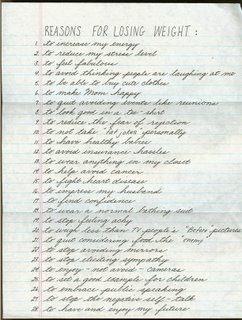 REASONS FOR LOSING WEIGHT:
1. to increase my energy
2. to reduce my stress level
3. to feel fabulous
4. to avoid thinking people are laughing at me
5. to be able to buy cute clothes
6. to make Mom happy
7. to quit avoiding events like reunions
8. to look good in a tee-shirt
9. to reduce the fear of rejection
10. to not take "fat jokes" personally
11. to have healthy babies
12. to avoid insurance hassles
13. to wear anything in my closet
14. to help avoid cancer
15. to fight heart disease
16. to impress my husband
17. to find confidence
18. to wear a normal bathing suit
19. to stop feeling achy
20. to weigh less than TV people's "before" pictures
21. to quit considering food the enemy
22. to stop avoiding mirrors
23. to stop eliciting sympathy
24. to enjoy - not avoid - cameras
25. to set a good example for children
26. to embrace public speaking
27. to stop the negative self-talk
28. to have and enjoy my future